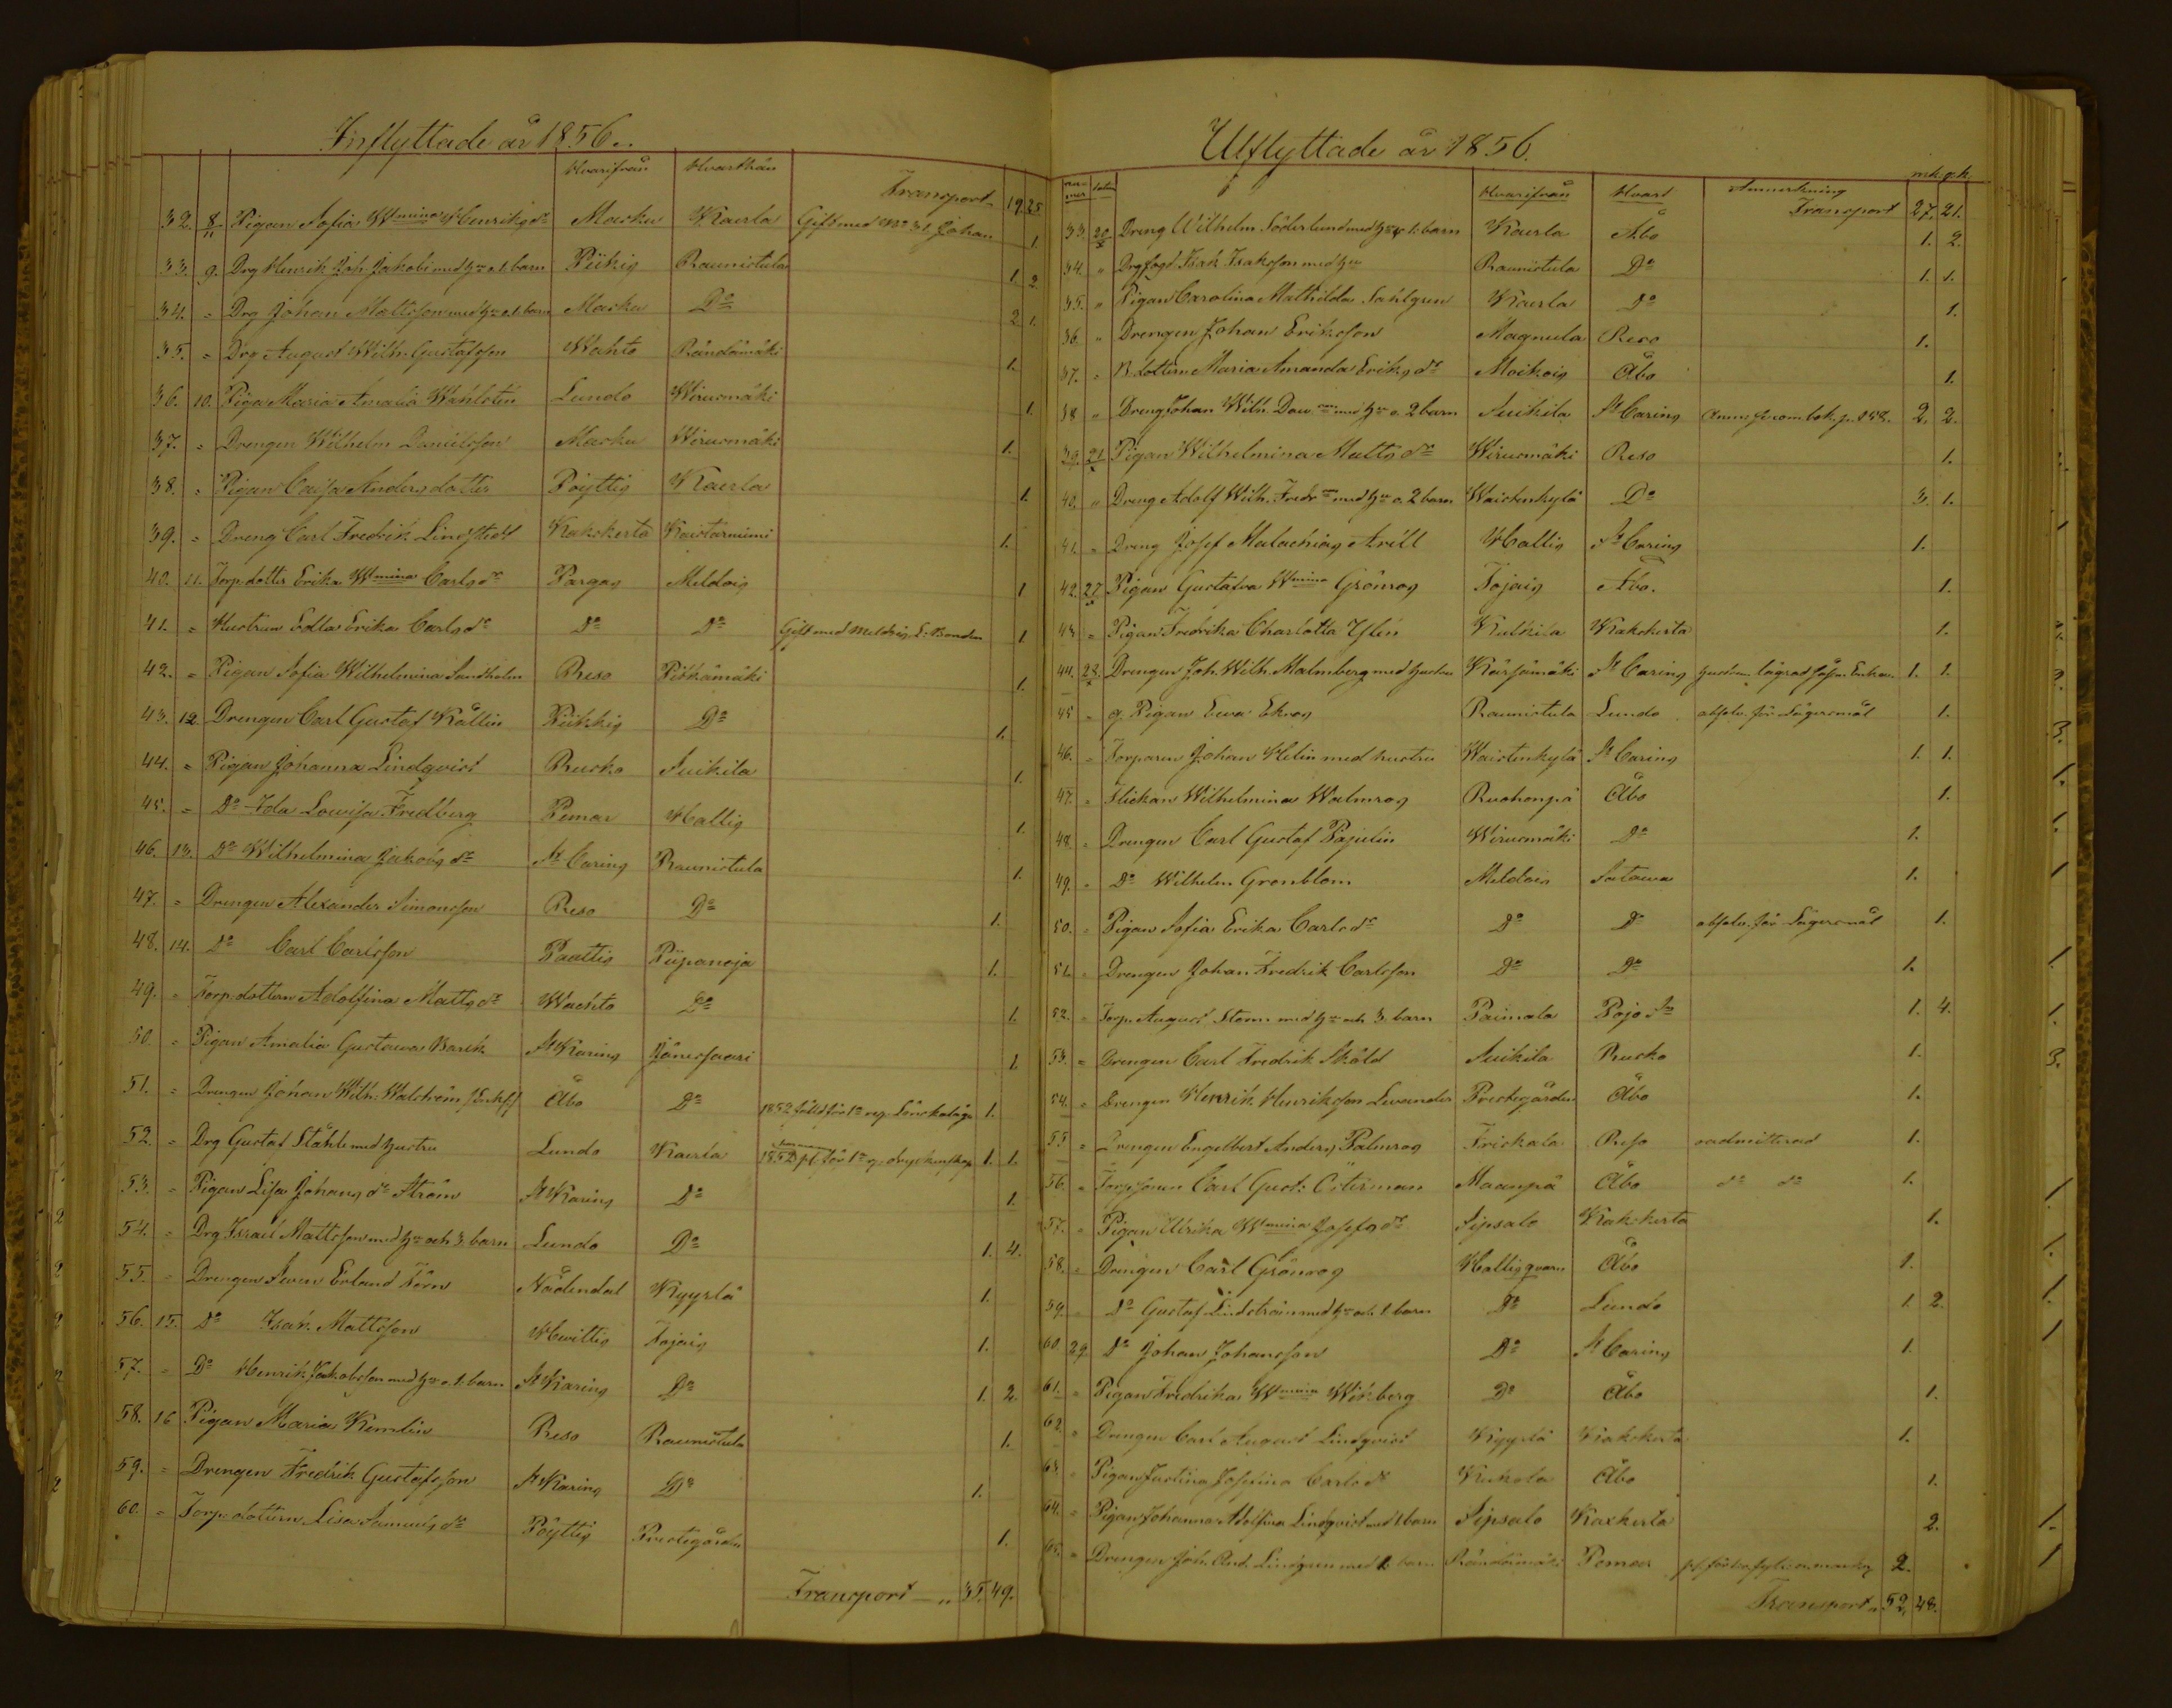 Inflyttade år 1856.
Hvarifrån Hvarthän
Transport 19. 25
32. 8/11 Pigan Sofia Wmina Henriksdr Masku Kaerla Gift med No 31 Johan 1.
33. 9. Drg Henrik Joh. Jakobi med hu o. 1. barn Piikis Raunistula 1. 2
34. " Drg Johan Mattsson med hu o. 1. barn Masku Do 2 1.
35. " Drg August Wilh. Gustafsson Wahto Räntämäki 1.
36. 10. Piga Maria Amalia Wahlstén Lundo Wirusmäki 1.
37. " Drengen Wilhelm Danielsson Masku Wirusmäki 1.
38. " Pigan Caisa Andersdotter Pöyttis Kaerla 1.
39. " Dreng Carl Fredrik Lindstedt Kakskerta Kaistarniemi 1.
40. 11. Torp. dotter Erika Wmina Carlsdr Pargas Mildois 1
41. " Hustrun Edla Erika Carlsdr Do Do Gift med 1
42. " Pigan Sofia Wilhelmina Sandholm Reso Pitkämäki 1.
43. 12. Drengen Carl Gustaf Kållin Piikkis Do 1.
44. " Pigan Johanna Lindqvist Rusko Suikila 1.
45. " Do Ida Lowisa Fredberg Pemar Hallis 1.
46. 13. Do Wilhelmina Jakobsdr St Carins Raunistula 1.
47. " Drengen Alexander Simonsson Reso Do 1.
48. 14. Do Carl Carlsson Paattis Piipanoja 1.
49. " Torp. dottern Adolfina Mattsdr Wachto Do 1.
50. " Pigan Amalia Gustawa Barck St Karins Jänessaari 1.
51. " Drengen Johan Wilh. Walström Åbo Do 1852 fälld för 1a 1.
52. " Drg Gustaf Ståhle med hustru Lundo Kaerla 1852 för 1a 1. 1.
53. " Pigan Lisa Johansdr Ström St Karins Do 1.
54. " Drg Israel Mattsson med hu och 3. barn Lundo Do 1. 4.
55. " Drengen Swen Erland Törn Nådendal Kyyrlä 1.
56. 15. Do Isak Mattsson Hwittis Tojais 1.
57. " Do Henrik Jakobsson med hu o. 1. barn St Karins Do 1. 2
58. 16 Pigan Maria Kemlin Reso Raunistula 1.
59. " Drengen Fredrik Gustafsson St Karins Do 1.
60. " Torp. dottern Lisa Samuelsdr Pöyttis Prestegården 1.
Transport " 35. 49.
Utflyttade år 1856.
nummer datum Hvarifrån Hvart Anmerkning mk. qk.
Transport 27. 21.
33. 20 Dreng Wilhelm Söderlund med hu o 1. barn Kaerla Åbo 1. 2.
34. " Drgfogd. Isak Isaksson med hu Raunistula Do 1. 1.
35. " Pigan Carolina Mathilda Sahlgren Kaerla Do 1.
36. " Drengen Johan Eriksson Magnula Reso 1.
37. " B. dottern Maria Amanda Eriksdr Moikois Åbo 1.
38 " Dreng Johan Wilh. med hu o. 2 barn Suikila St Carins 2. 2.
39. 21 Pigan Wilhelmina Mattsdr Wirusmäki Reso 1.
40. " Dreng Adolf Wilh. med hu o. 2 barn Waistenkylä Do 3. 1.
41. " Dreng Josef Malachias Arell Hallis St Carins 1.
42. 27 Pigan Gustafva Wmina Grönros Tojais Åbo. 1.
43 " Pigan Fredrika Charlotta Ylén Kulkila Kakskerta 1.
44. 28. Drengen Joh. Wilh. Malmberg med hustru Kärsämäki St Carins 1. 1.
45 " g. Pigan Ewa Ekros Raunistula Lundo absolv. för Lägersmål 1.
46. " Torparen Johan Helin med hustru Waistenkylä St Carins 1. 1.
47. " Flickan Wilhelmina Walmros Ruohonpä Åbo 1.
48. " Drengen Carl Gustaf Pajulin Wirusmäki Do 1.
49. " Do Wilhelm Gronblom Mildois Satawa 1.
50. " Pigan Sofia Erika Carlsdr Do Do absolv. för Lägersmål 1.
51. " Drengen Johan Fredrik Carlsson Do Do 1.
52. " Torp. August Storm med hu och 3. barn Paimala Pojo 1. 4.
53. " Drengen Carl Fredrik Sköld Suikila Rusko 1.
54. " Drengen Henrik Henriksson Levander Prestegården Åbo 1.
55 " Drengen Engelbert Anders Palmros Friskala Reso oadmitterad 1.
56. " Torpsonen Carl Gust. Österman Maanpä Åbo do do 1.
57. " Pigan Ulrika Wmina Josefsdr Lipsalo Kakskerta 1.
58. " Drengen Carl Grönros Hallisqvarn Åbo 1.
59. " Do Gustaf Lindström med hu och 1 barn Do Lundo 1. 2.
60. 29. Do Johan Johansson Do St Carins 1.
61. " Pigan Fredrika Wmina Wikberg Do Åbo 1.
62. " Drengen Carl August Lindqvist Kyyrlä Kakskerta 1.
63. " Pigan Justina Josefina Carlsdr Kukola Åbo 1.
64. " Pigan Johanna Adolfina Lindqvist med 1 barn Lipsalo Kaxkerta 2.
65. " Drengen Joh. And. Lindgren med 1. barn Räntämäki Pemar 2.
Transport " 52. 48.